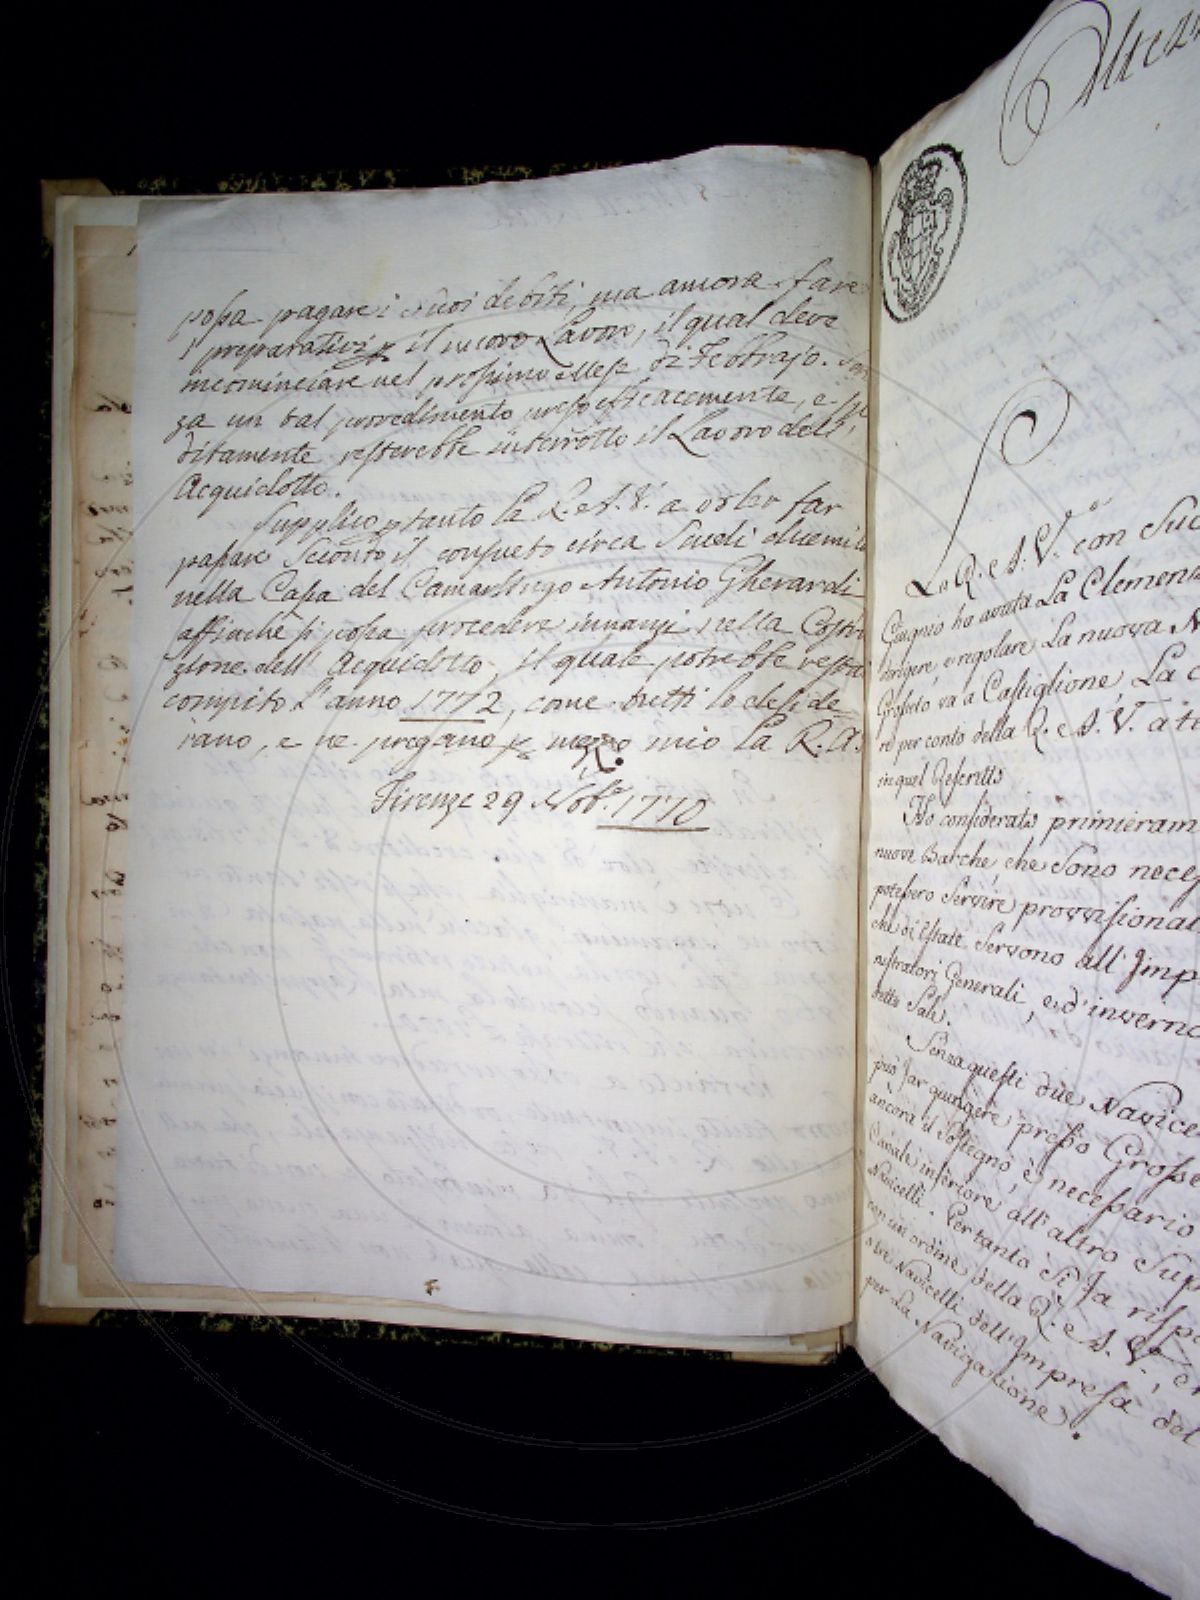 possa pagare i suoi debiti, ma ancora fare
i preparativi p il nuovo Lavoro, il qual deve
incominciare nel prossimo Mese di Febbrajo. Sen
za un tal provedimento preso efficacemente, e spe
ditamente resterebbe interrotto il Lavoro dell'
Acquidotto.
Supplico ptanto la R. e A. V. a voler far
pagare Sconto il consueto circa Scudi duemila
nella Cassa del Camarlingo Antonio Gherardi
affinchè si possa procedere innanzi nella Costru
zione dell' Acquidotto, il quale potrebbe restar
compito l'anno 1772, come tutti lo deside
rano, e ne pregano p mezzo mio la R. A.
V.
Firenze 29 Nob.e 1770
Altezza
La R. e A. V. con Suo
Giugno ha avuta La Clemenza
dirigere, e regolare La nuova N
Grosseto va a Castiglione, La c
re per conto della R. e A. V. a t
in quel Rescritto
Ho considerato primieram
nuove Barche, che Sono neces
potessero Servire provvisional
che di Estate Servono all' Imp
nistratori Generali, e d'inverno
detto Sale.
Senza questi due Navice
può far giungere presso Grosse
ancora il Sostegno, è necessario
Canale inferiore all' altro Sup
Navicelli. Pertanto Si fa risp
con un ordine della R. e A. V.
o tre Navicelli dell' Impresa del
per La Navigazione.